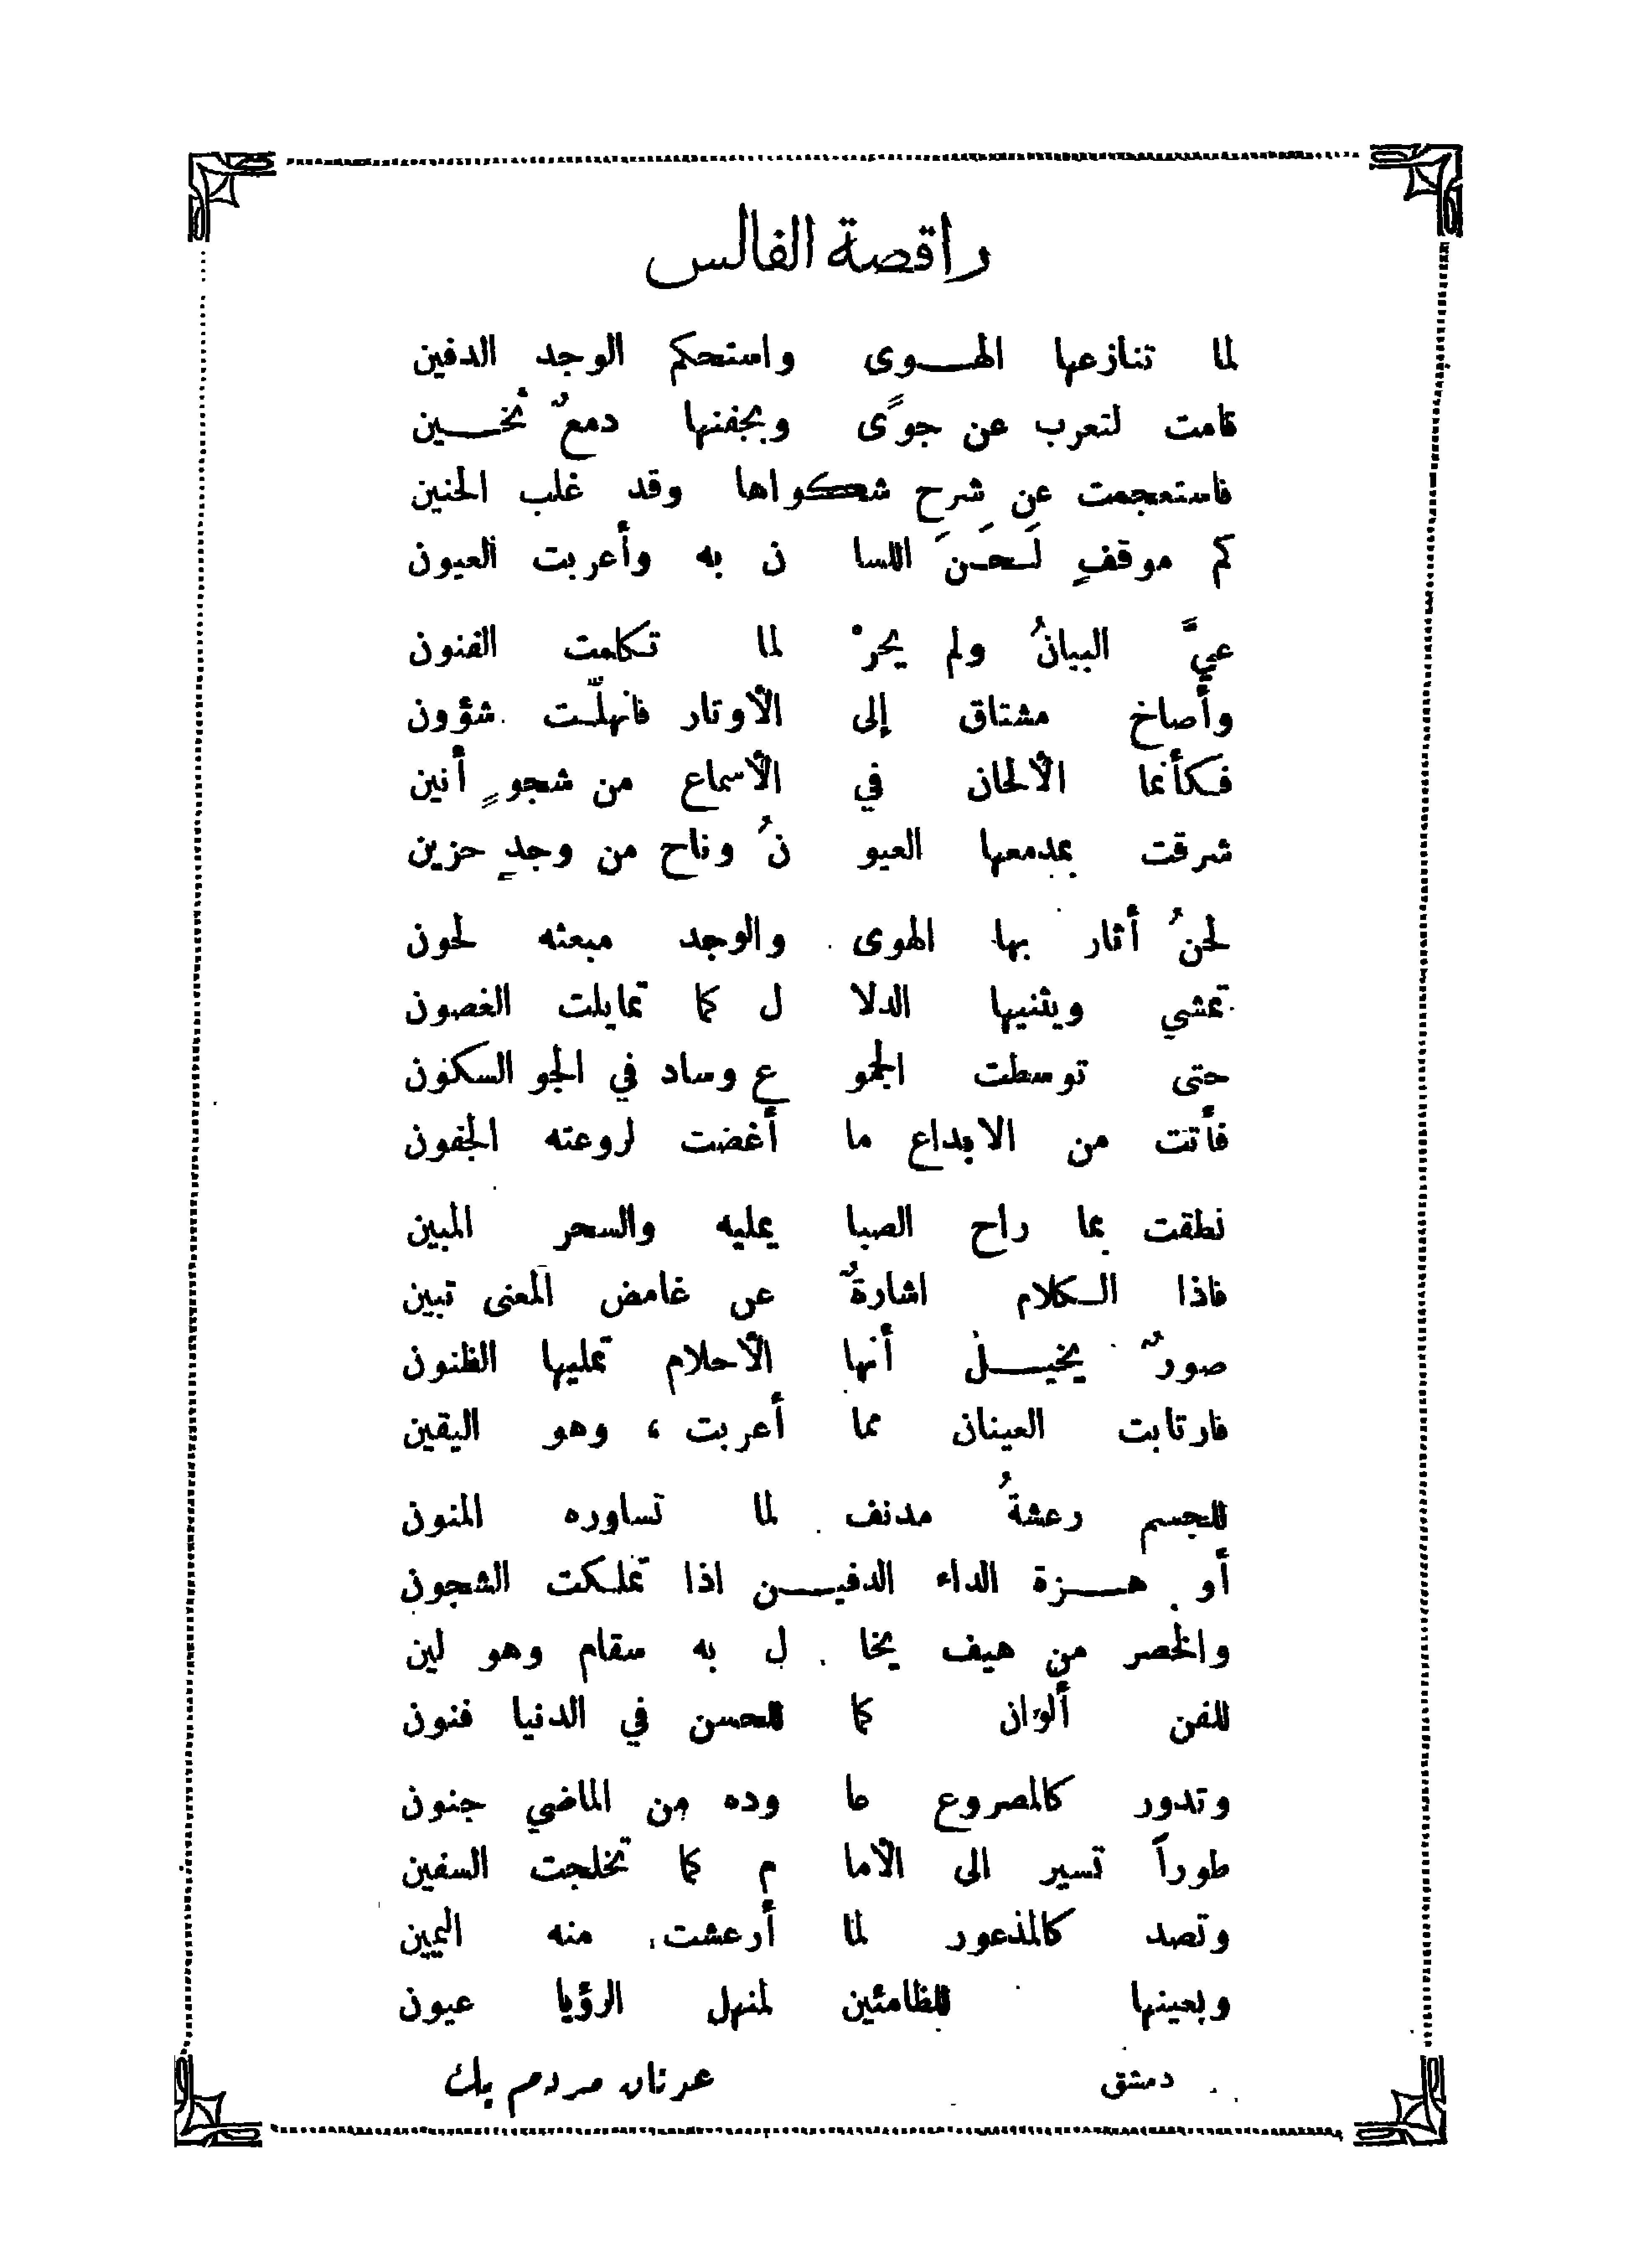 راقصة الفالس
لما تنازعها الهــوى واستحكم الوجد الدفين
قامت لتعرب عن جوًى وبجفنها دمعٌ ثخــين
فاستعجمت عن شرح شكواها وقد غلب الحنين
كم موقفٍ لَـحَـنَ اللسا ن به وأعربت العيون
عيَّ البيانُ ولم يحرْ لما تكلمت الفنون
وأصاخ مشتاق إلى الأوتار فانهلّت شؤون
فكأنما الألحان في الأسماع من شجوٍ أنين
شرقت بمدمعها العيو نُ وناح من وجدٍ حزين
لحنُ أثار بها الهوى والوجد مبعثه لحون
تمشي ويثنيها الدلا ل كما تمايلت الغصون
حتى توسطت الجمو ع وساد في الجو السكون
فأتت من الابداع ما أغضت لروعته الجفون
نطقت بما راح الصبا يمليه والسحر المبين
فاذا الكلام اشارةٌ عن غامض المعنى تبين
صورٌ يخيــل أنها الأحلام تمليها الظنون
فارتابت العينان مما أعربت ، وهو اليقين
للجسم رعشةُ مدنف لما تساوره المنون
أو هــزة الداء الدفيــن اذا تملكت الشجون
والخصر من هيف يخا ل به سقام وهو لين
للفن ألوان كما للحسن في الدنيا فنون
وتدور كالمصروع عا وده من الماضي جنون
طوراً تسير الى الأما م كما تخلجت السفين
وتصد كالمذعور لما أرعشت منه اليمين
وبعينها للظامئين لمنهل الرؤيا عيون
دمشق عدنان مردم بك